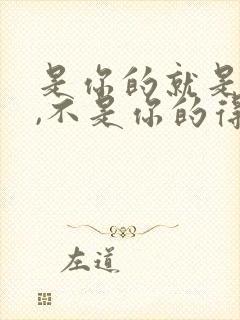 是你的就是
,不是你的得
左道